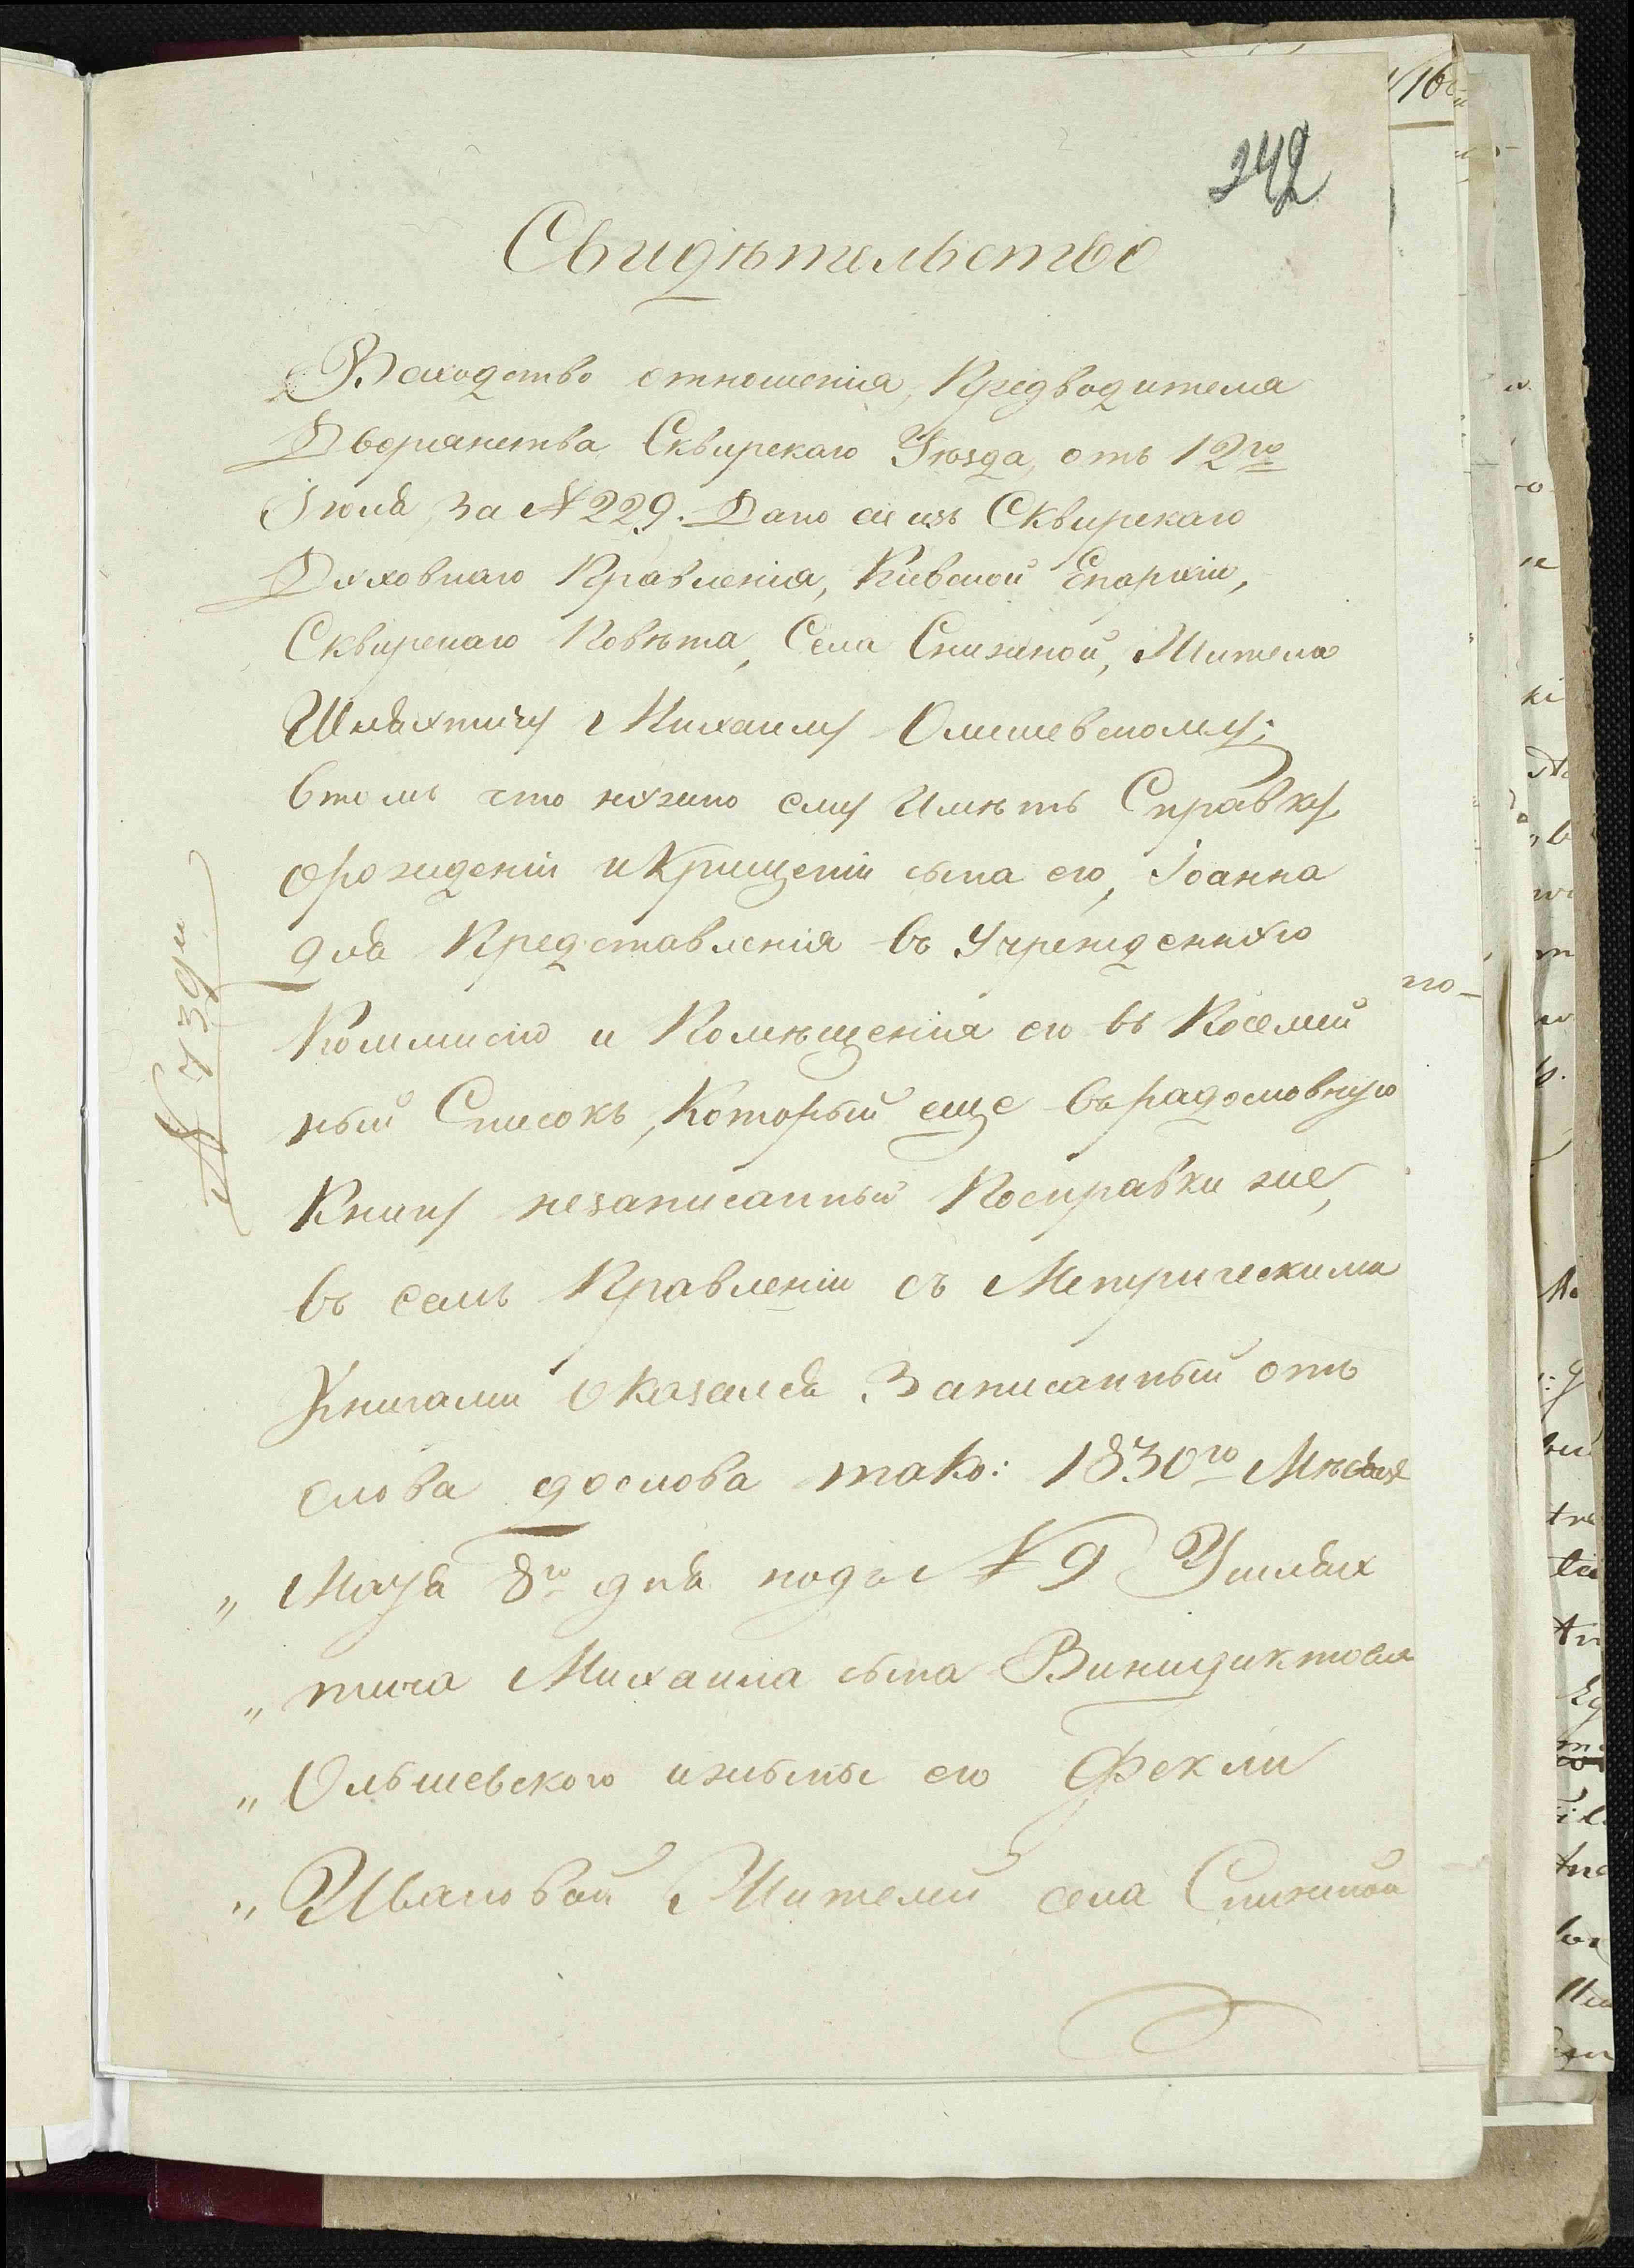 242
Свидѣтельство
Всходство отношенія, Предводителя
Дворянства Сквирскаго Уѣзда, отъ 12го
Іюля за № 229. Дано сіе изъ Сквирскаго
Духовнаго Правленія, Кіевской Епархіи,
Сквирскаго Повѣта, Села Снижной, Жителю
Шляхтичу Михаилу Олшевскому;
втомъ что нужно ему имѣть Справку
орождении икрищеніи сына его, Іоанна
для Представленія въ Учрежденную
Коммисію и Помѣщенія его въ Посемей
ный Списокъ, Который еще въ радословную
Книгу незаписанный Посправки же,
въ семъ Правленіи съ Метрическими
Книгами Оказался Записанный отъ
слова дослова тако: 1830го Мѣсяця
„ Маія 8го дня подъ № 9 У шлях
„ тича Михаила сына Винидиктова
„ Ольшевского ижыны его Феклы
„ Ивановой Жителей села Снижной
№ 739